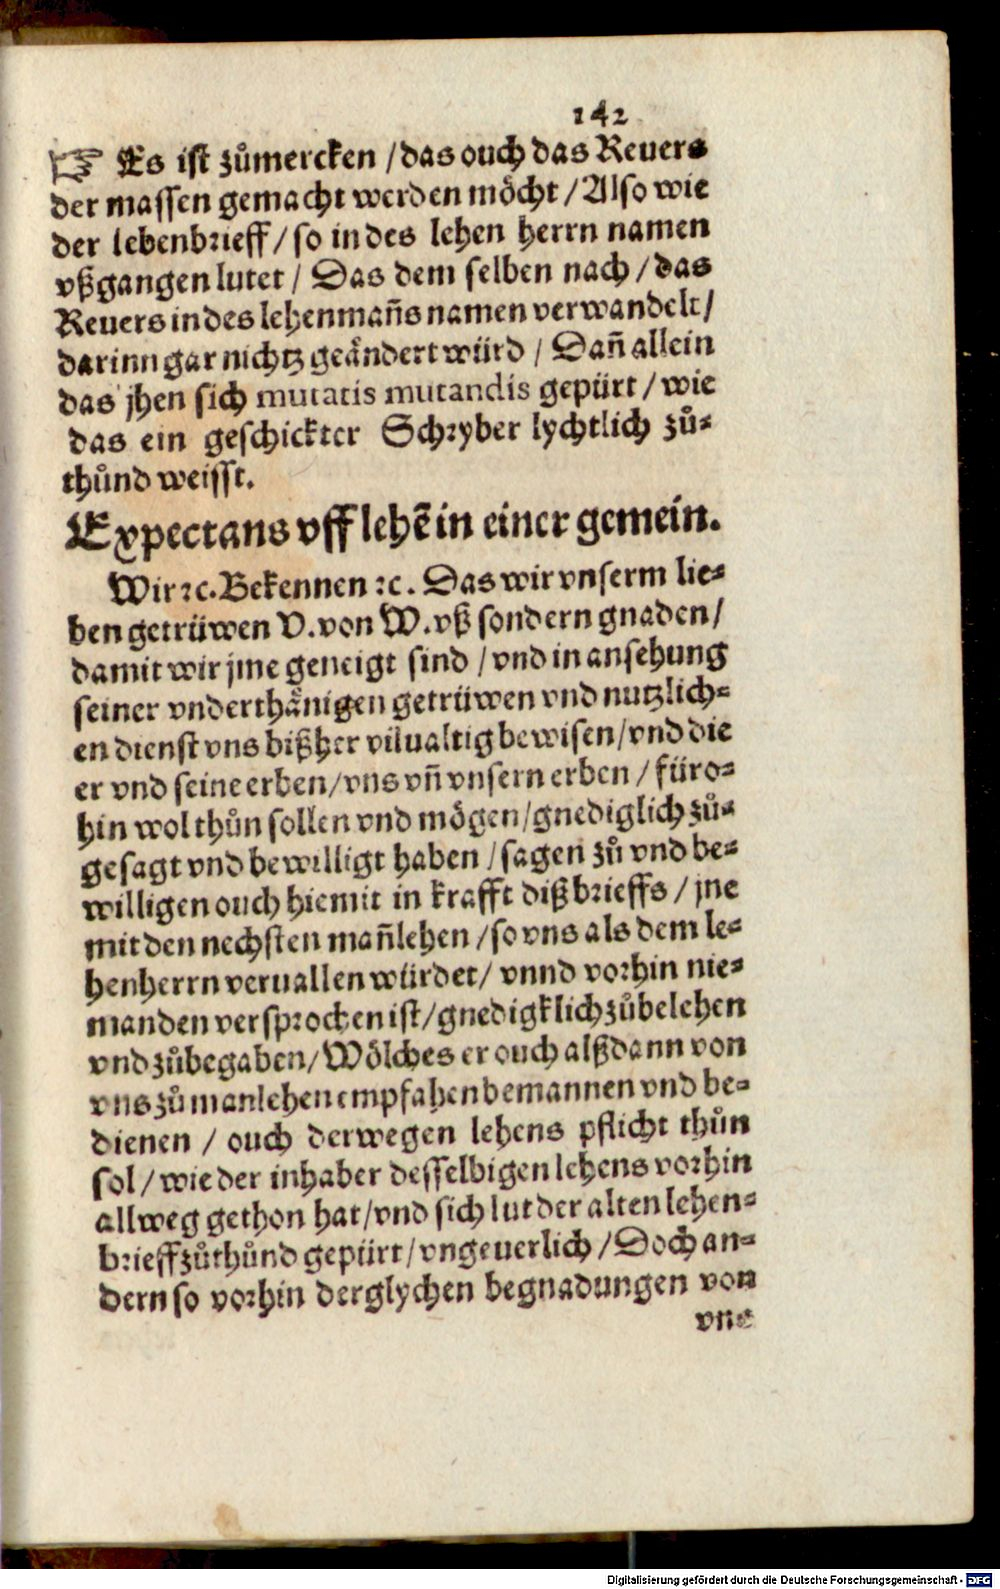 142
☞ Es ist zůmercken / das ouch das Reuers
der massen gemacht werden möcht / Also wie
der lebenbrieff / so in des lehen herrn namen
vßgangen lutet / Das dem selben nach / das
Reuers in des lehenmañs namen verwandelt /
darinn gar nichtz geändert würd / Dañ allein
das jhen sich mutatis mutandis gepürt / wie
das ein geschickter Schryber lychtlich zů⸗
thůnd weisst.
Expectans vff lehẽ in einer gemein.
Wir ꝛc. Bekennen ꝛc. Das wir vnserm lie⸗
ben getrüwen V. von W. vß sondern gnaden /
damit wir jme geneigt sind / vnd in ansehung
seiner vnderthänigen getrüwen vnd nutzlich⸗
en dienst vns bißher vilualtig bewisen / vnd die
er vnd seine erben / vns vñ vnsern erben / füro⸗
hin wol thůn sollen vnd mögen / gnediglich zů⸗
gesagt vnd bewilligt haben / sagen zů vnd be⸗
willigen ouch hiemit in krafft diß brieffs / jne
mit den nechsten mañlehen / so vns als dem le⸗
henherrn veruallen würdet / vnnd vorhin nie⸗
manden versprochen ist / gnedigklich zůbelehen
vnd zůbegaben / Wölches er ouch alßdann von
vns zů manlehen empfahen bemannen vnd be⸗
dienen / ouch derwegen lehens pflicht thůn
sol / wie der inhaber desselbigen lehens vorhin
allweg gethon hat / vnd sich lut der alten lehen⸗
brieff zůthůnd gepürt / vngeuerlich / Doch an⸗
dern so vorhin derglychen begnadungen von
vns
Digitalisierung gefördert durch die Deutsche Forschungsgemeinschaft - DFG